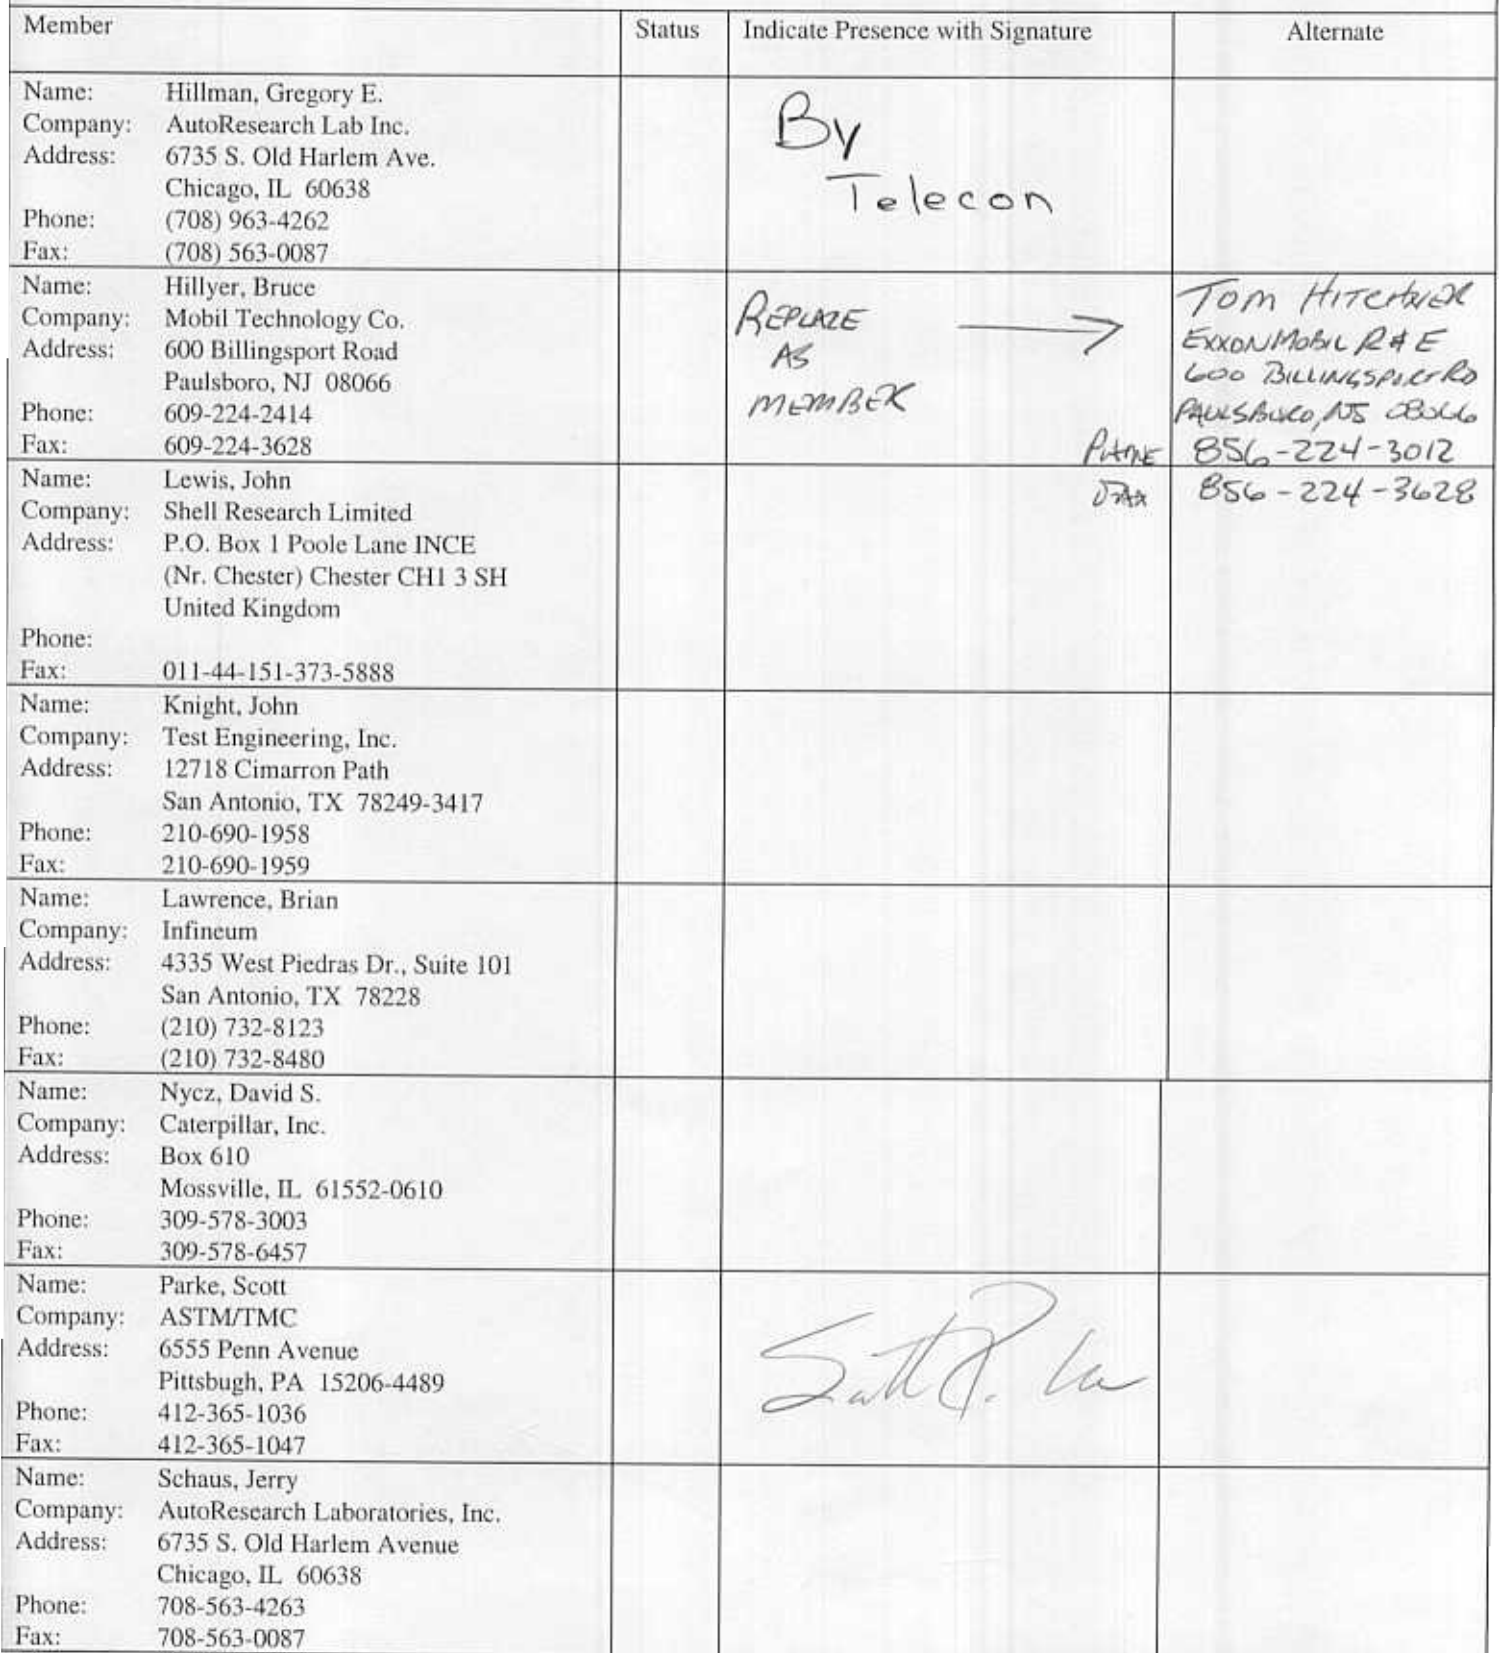 Member Status Indicate Presence with Signature Alternate
Name: Hillman, Gregory E.
Company: AutoResearch Lab Inc.
Address: 6735 S. Old Harlem Ave.
Chicago, IL 60638
Phone: (708) 963-4262
Fax: (708) 563-0087
By
Telecon
Name: Hillyer, Bruce
Company: Mobil Technology Co.
Address: 600 Billingsport Road
Paulsboro, NJ 08066
Phone: 609-224-2414
Fax: 609-224-3628
REPLACE
AS
MEMBER
TOM HITCHNER
EXXONMOBIL R & E
600 BILLINGSPORT RD
PAULSBORO, NJ 08066
PHONE 856-224-3012
FAX 856-224-3628
Name: Lewis, John
Company: Shell Research Limited
Address: P.O. Box 1 Poole Lane INCE
(Nr. Chester) Chester CH1 3 SH
United Kingdom
Phone:
Fax: 011-44-151-373-5888
Name: Knight, John
Company: Test Engineering, Inc.
Address: 12718 Cimarron Path
San Antonio, TX 78249-3417
Phone: 210-690-1958
Fax: 210-690-1959
Name: Lawrence, Brian
Company: Infineum
Address: 4335 West Piedras Dr., Suite 101
San Antonio, TX 78228
Phone: (210) 732-8123
Fax: (210) 732-8480
Name: Nycz, David S.
Company: Caterpillar, Inc.
Address: Box 610
Mossville, IL 61552-0610
Phone: 309-578-3003
Fax: 309-578-6457
Name: Parke, Scott
Company: ASTM/TMC
Address: 6555 Penn Avenue
Pittsbugh, PA 15206-4489
Phone: 412-365-1036
Fax: 412-365-1047
Name: Schaus, Jerry
Company: AutoResearch Laboratories, Inc.
Address: 6735 S. Old Harlem Avenue
Chicago, IL 60638
Phone: 708-563-4263
Fax: 708-563-0087